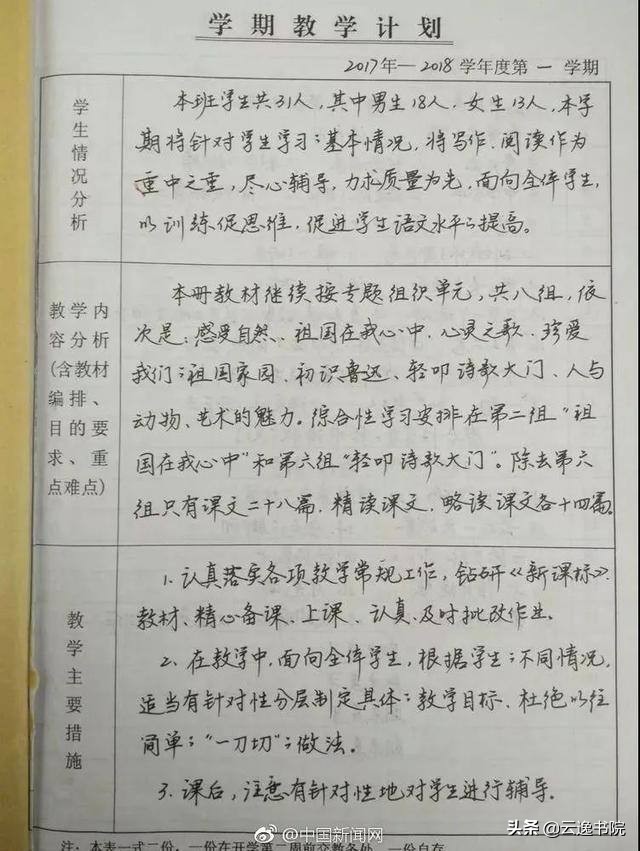 学期教学计划
2017年—2018学年度第一学期
学生情况分析
本班学生共31人，其中男生18人，女生13人，本学
期将针对学生学习的基本情况，将写作、阅读作为
重中之重，尽心辅导，力求质量为先，面向全体学生，
以训练促思维，促进学生语文水平的提高。
教学内
容分析
(含教材
编排、
目的要
求、重
点难点)
本册教材继续按专题组织单元，共八组，依
次是：感受自然、祖国在我心中、心灵之歌、珍爱
我们的祖国家园、初识鲁迅、轻叩诗歌大门、人与
动物、艺术的魅力。综合性学习安排在第二组“祖
国在我心中”和第六组“轻叩诗歌大门”。除去第六
组只有课文二十八篇，精读课文、略读课文各十四篇。
教学主要措施
1.认真落实各项教学常规工作，钻研《新课标》
教材、精心备课、上课、认真、及时批改作业。
2、在教学中，面向全体学生，根据学生的不同情况，
适当有针对性分层制定具体的教学目标、杜绝以往
简单的“一刀切”的做法。
3.课后，注意有针对性地对学生进行辅导。
注：本表一式二份：一份在开学第二周前交教务处，一份自存
@中国新闻网
头条@云逸书院